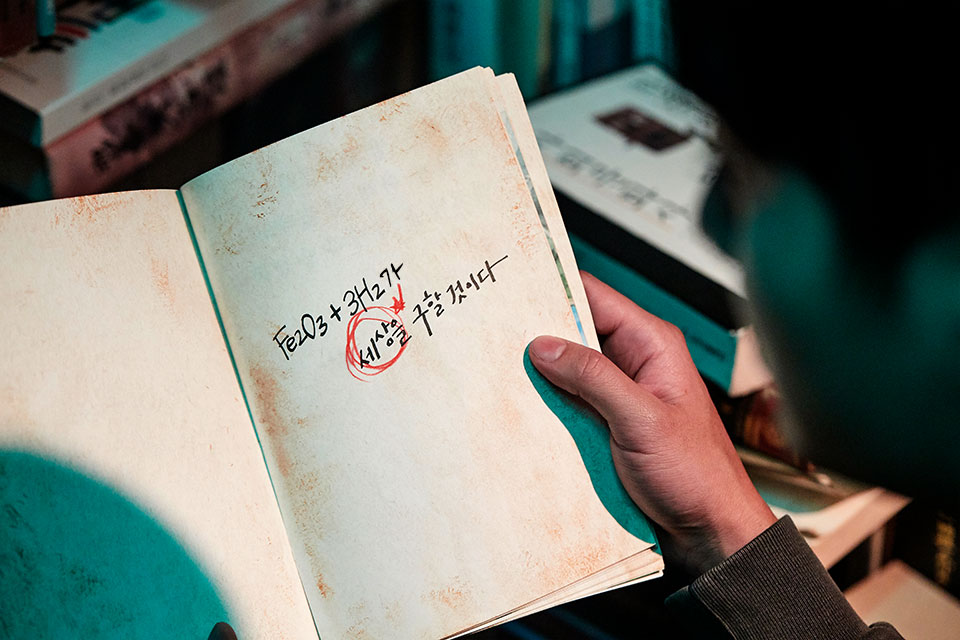 Fe2O3 + 3H2가
세상을 구할 것이다